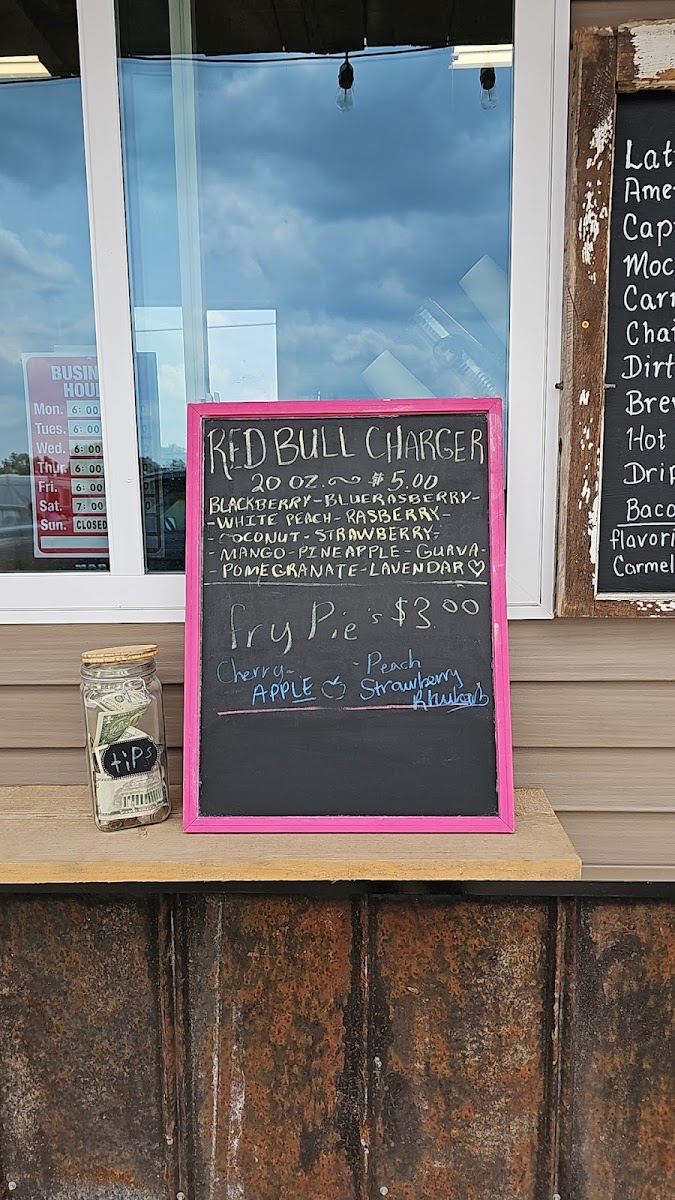 BUSIN
HOU
Mon. 6:00
Tues. 6:00
Wed. 6:00
Thur 6:00
Fri. 6:00
Sat. 7:00
Sun. CLOSED
RED BULL CHARGER
20 OZ. ~ $5.00
BLACKBERRY-BLUERASBERRY-
-WHITE PEACH-RASBERRY-
-COCONUT-STRAWBERRY-
-MANGO-PINEAPPLE-GUAVA-
-POMEGRANATE-LAVENDAR♡
fry Pie's $3.00
Cherry- - Peach
APPLE Strawberry
Rhubarb
tips
Lat
Ame
Cap
Moc
Car
Chai
Dirt
Brev
Hot
Drip
Baco
flavori
Carmel